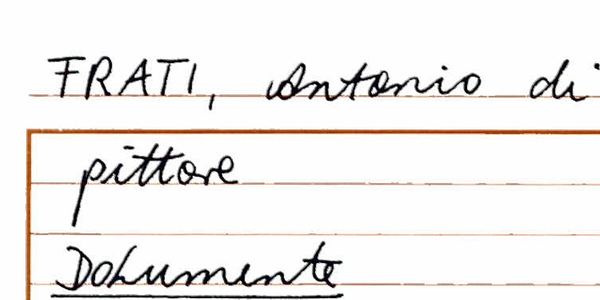 FRATI, Antonio di
pittore
Dokumente